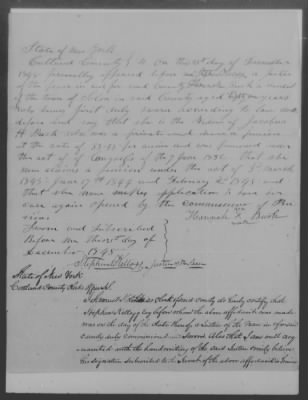 State of New York
Cortland County SS On this day of December
1848 personally appeared before me a justice
of the peace in and for said County Hannah Bush a resident
of the town of Solon in said County aged years
who being first duly sworn according to law
deposes and say that she is the Widow of
H Bush who was a private and drew a pension
at the rate of per annum and was pensioned under
the act of Congress of the 7 June 1832 that she
now claims a pension under the act of 3d March
1843 June 17th 1844 and February 2d 1848 and
that she now makes application to have
case again opened by the Commissioner of Pen
sions
Hannah Bush
Sworn and Subscribed
Before me this 21st day of
December 1848
Stephen Kellogg Justice of the Peace
State of New York
Cortland County Clerks Office SS.
I Samuel Clerk of said county do hereby certify that
Stephen Kellogg Esq before whom the above affidavit was made
was on the day of the date thereof a Justice of the Peace in & for said
county duly commissioned and sworn also that I am well acq
uainted with the handwriting of the said Justice and verily believe
his signature subscribed to the Jurat of the above affidavit is Genuine